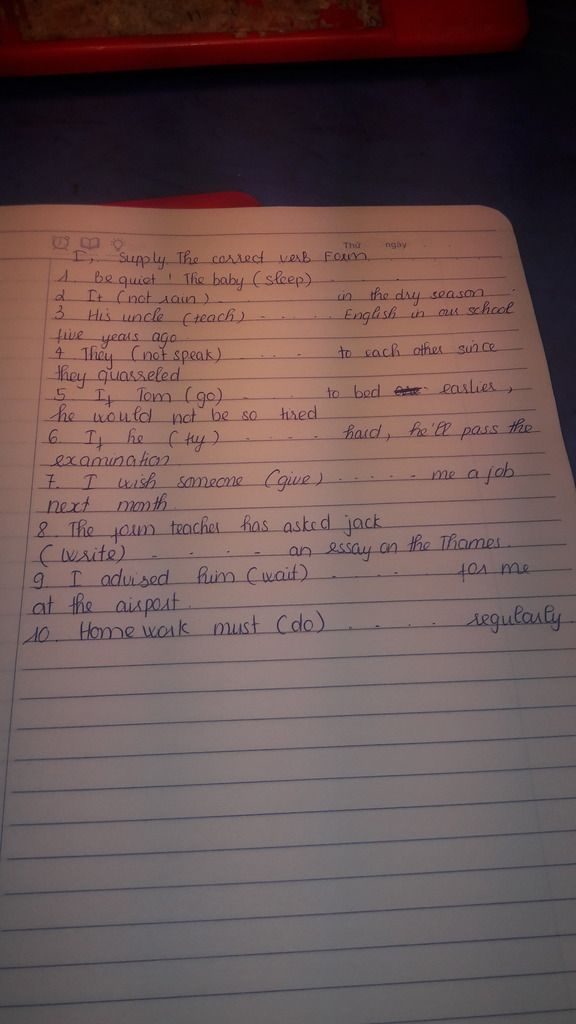 Thứ ngày
I, Supply The correct verb Form
1. Be quiet ! The baby (sleep) . . . .
2 It (not rain) . . . . in the dry season
3 His uncle (teach) . . . . English in our school
five years ago
4 They (not speak) . . . . to each other since
they quarreled
5. If Tom (go) . . . . to bed earlier,
he would not be so tired
6. If he (try) . . . . hard, he'll pass the
examination
7. I wish someone (give) . . . . . me a job
next month
8. The form teacher has asked jack
(write) . . . . an essay on the Thames.
9 I advised him (wait) . . . . for me
at the airport.
10. Home work must (do) . . . . regularly